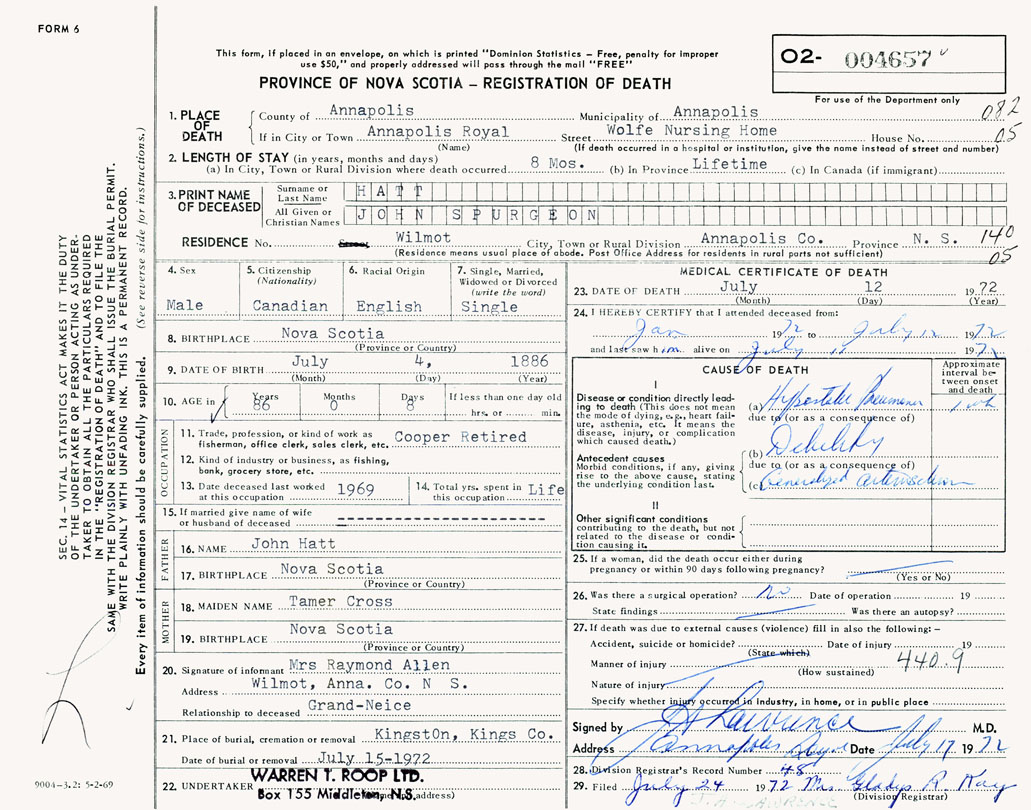 FORM 6
This form, if placed in an envelope, on which is printed "Dominion Statistics — Free, penalty for improper
use $50," and properly addressed will pass through the mail "FREE"
PROVINCE OF NOVA SCOTIA — REGISTRATION OF DEATH
O2- 004657
For use of the Department only
082
05
1. PLACE OF DEATH
County of Annapolis Municipality of Annapolis
If in City or Town Annapolis Royal Street Wolfe Nursing Home House No.
(Name) (If death occurred in a hospital or institution, give the name instead of street and number)
2. LENGTH OF STAY (in years, months and days)
(a) In City, Town or Rural Division where death occurred 8 Mos. (b) In Province Lifetime (c) In Canada (if immigrant)
3. PRINT NAME OF DECEASED
Surname or Last Name HATT
All Given or Christian Names JOHN SPURGEON
RESIDENCE No. Street Wilmot City, Town or Rural Division Annapolis Co. Province N. S. 140
(Residence means usual place of abode. Post Office Address for residents in rural parts not sufficient) 05
4. Sex
Male
5. Citizenship
(Nationality)
Canadian
6. Racial Origin
English
7. Single, Married,
Widowed or Divorced
(write the word)
Single
8. BIRTHPLACE Nova Scotia
(Province or Country)
9. DATE OF BIRTH July 4, 1886
(Month) (Day) (Year)
10. AGE in Years Months Days If less than one day old
86 0 8 hrs. or min.
OCCUPATION
11. Trade, profession, or kind of work as
fisherman, office clerk, sales clerk, etc. Cooper Retired
12. Kind of industry or business, as fishing,
bank, grocery store, etc.
13. Date deceased last worked
at this occupation 1969
14. Total yrs. spent in
this occupation Life
15. If married give name of wife
or husband of deceased
FATHER
16. NAME John Hatt
17. BIRTHPLACE Nova Scotia
(Province or Country)
MOTHER
18. MAIDEN NAME Tamer Cross
19. BIRTHPLACE Nova Scotia
(Province or Country)
20. Signature of informant Mrs Raymond Allen
Address Wilmot, Anna. Co. N S.
Relationship to deceased Grand-Neice
21. Place of burial, cremation or removal KingstOn, Kings Co.
Date of burial or removal July 15-1972
22. UNDERTAKER WARREN T. ROOP LTD.
Box 155 Middleton, N.S. address)
MEDICAL CERTIFICATE OF DEATH
23. DATE OF DEATH July 12 1972
(Month) (Day) (Year)
24. I HEREBY CERTIFY that I attended deceased from:
Jan 1972 to July 12 1972
and last saw him alive on July 11 1972
CAUSE OF DEATH
Approximate
interval be-
tween onset
and death
I
Disease or condition directly lead-
ing to death (This does not mean
the mode of dying, e.g., heart fail-
ure, asthenia, etc. It means the
disease, injury, or complication
which caused death.)
(a) Hypostatic Pneumonia 1 wk
due to (or as a consequence of)
Antecedent causes
Morbid conditions, if any, giving
rise to the above cause, stating
the underlying condition last.
(b) Debility
due to (or as a consequence of)
(c) Generalized arteriosclerosis
II
Other significant conditions
contributing to the death, but not
related to the disease or condi-
tion causing it.
25. If a woman, did the death occur either during
pregnancy or within 90 days following pregnancy?
(Yes or No)
26. Was there a surgical operation? No Date of operation 19
State findings Was there an autopsy?
27. If death was due to external causes (violence) fill in also the following:—
Accident, suicide or homicide? Date of injury 19
(State which) 440.9
Manner of injury
(How sustained)
Nature of injury
Specify whether injury occurred in industry, in home, or in public place
Signed by Lawrence M.D.
Address Annapolis Royal Date July 17 1972
28. Division Registrar's Record Number 48
29. Filed July 24 1972 Mrs. Gladys R. Kay
(Division Registrar)
LAWRENCE
SEC. 14 — VITAL STATISTICS ACT MAKES IT THE DUTY
OF THE UNDERTAKER OR PERSON ACTING AS UNDER-
TAKER TO OBTAIN ALL THE PARTICULARS REQUIRED
IN THE "REGISTRATION OF DEATH" AND TO FILE THE
SAME WITH THE DIVISION REGISTRAR WHO SHALL ISSUE THE BURIAL PERMIT.
WRITE PLAINLY WITH UNFADING INK. THIS IS A PERMANENT RECORD.
Every item of information should be carefully supplied. (See reverse side for instructions.)
9004-3.2: 5-2-69